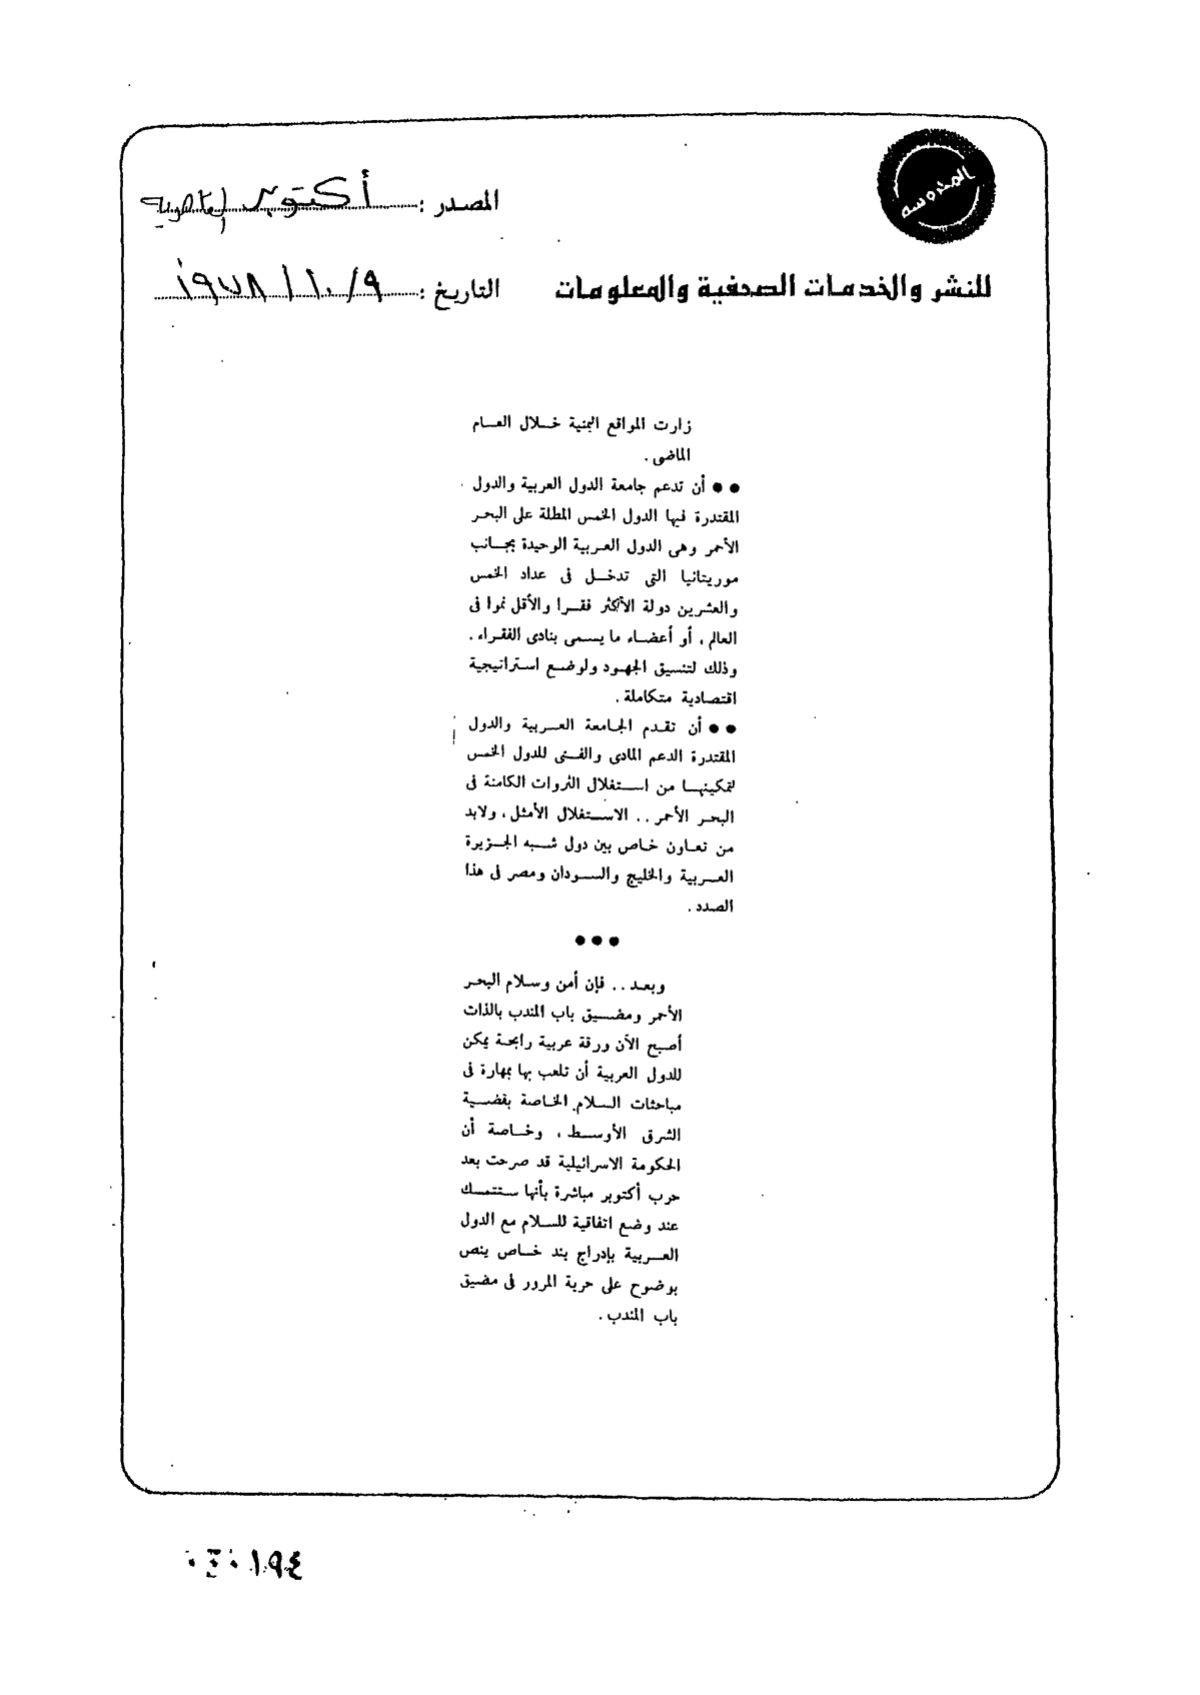 المحروسة
المصدر : أكتوبر القاهرية
للنشر والخدمات الصحفية والمعلومات
التاريخ : ٩/ ١٠ / ١٩٧٨
زارت المواقع اليمنية خلال العام
الماضى .
●● أن تدعم جامعة الدول العربية والدول
المقتدرة فيها الدول الخمس المطلة على البحر
الأحمر وهى الدول العربية الوحيدة بجانب
موريتانيا التى تدخل فى عداد الخمس
والعشرين دولة الأكثر فقرا والأقل نموا فى
العالم ، أو أعضاء ما يسمى بنادى الفقراء .
وذلك لتنسيق الجهود ولوضع استراتيجية
اقتصادية متكاملة .
●● أن تقدم الجامعة العربية والدول
المقتدرة الدعم المادى والفنى للدول الخمس
لتمكينها من استغلال الثروات الكامنة فى
البحر الأحمر .. الاستغلال الأمثل ، ولابد
من تعاون خاص بين دول شبه الجزيرة
العربية والخليج والسودان ومصر فى هذا
الصدد .
●●●
وبعد .. فإن أمن وسلام البحر
الأحمر ومضيق باب المندب بالذات
أصبح الآن ورقة عربية رابحة يمكن
للدول العربية أن تلعب بها بمهارة فى
مباحثات السلام الخاصة بقضية
الشرق الأوسط ، وخاصة أن
الحكومة الاسرائيلية قد صرحت بعد
حرب أكتوبر مباشرة بأنها ستتمسك
عند وضع اتفاقية للسلام مع الدول
العربية بإدراج بند خاص ينص
بوضوح على حرية المرور فى مضيق
باب المندب .
١٩٤